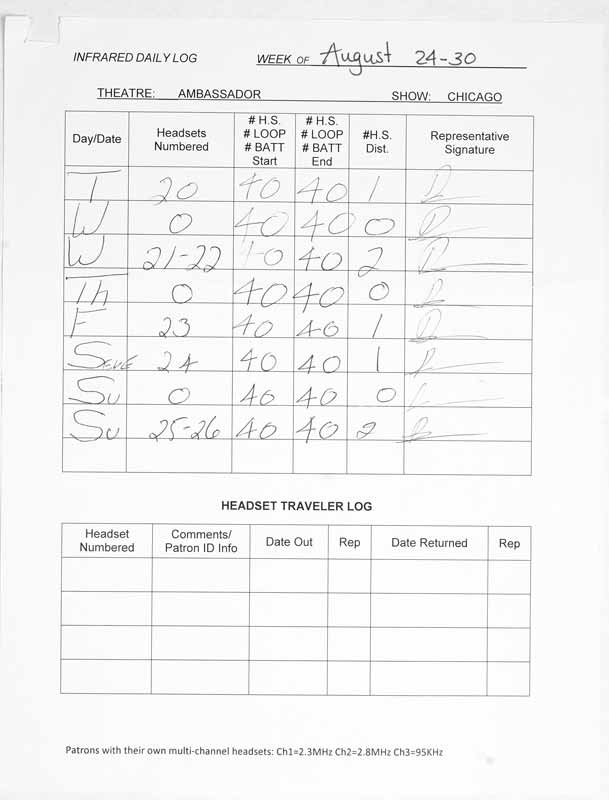 INFRARED DAILY LOG WEEK OF August 24-30
THEATRE: AMBASSADOR SHOW: CHICAGO
Day/Date Headsets Numbered # H.S. # LOOP # BATT Start # H.S. # LOOP # BATT End #H.S. Dist. Representative Signature
T 20 40 40 1
W 0 40 40 0
W 21-22 40 40 2
Th 0 40 40 0
F 23 40 40 1
SEVE 24 40 40 1
SU 0 40 40 0
SU 25-26 40 40 2
HEADSET TRAVELER LOG
Headset Numbered Comments/ Patron ID Info Date Out Rep Date Returned Rep
Patrons with their own multi-channel headsets: Ch1=2.3MHz Ch2=2.8MHz Ch3=95KHz